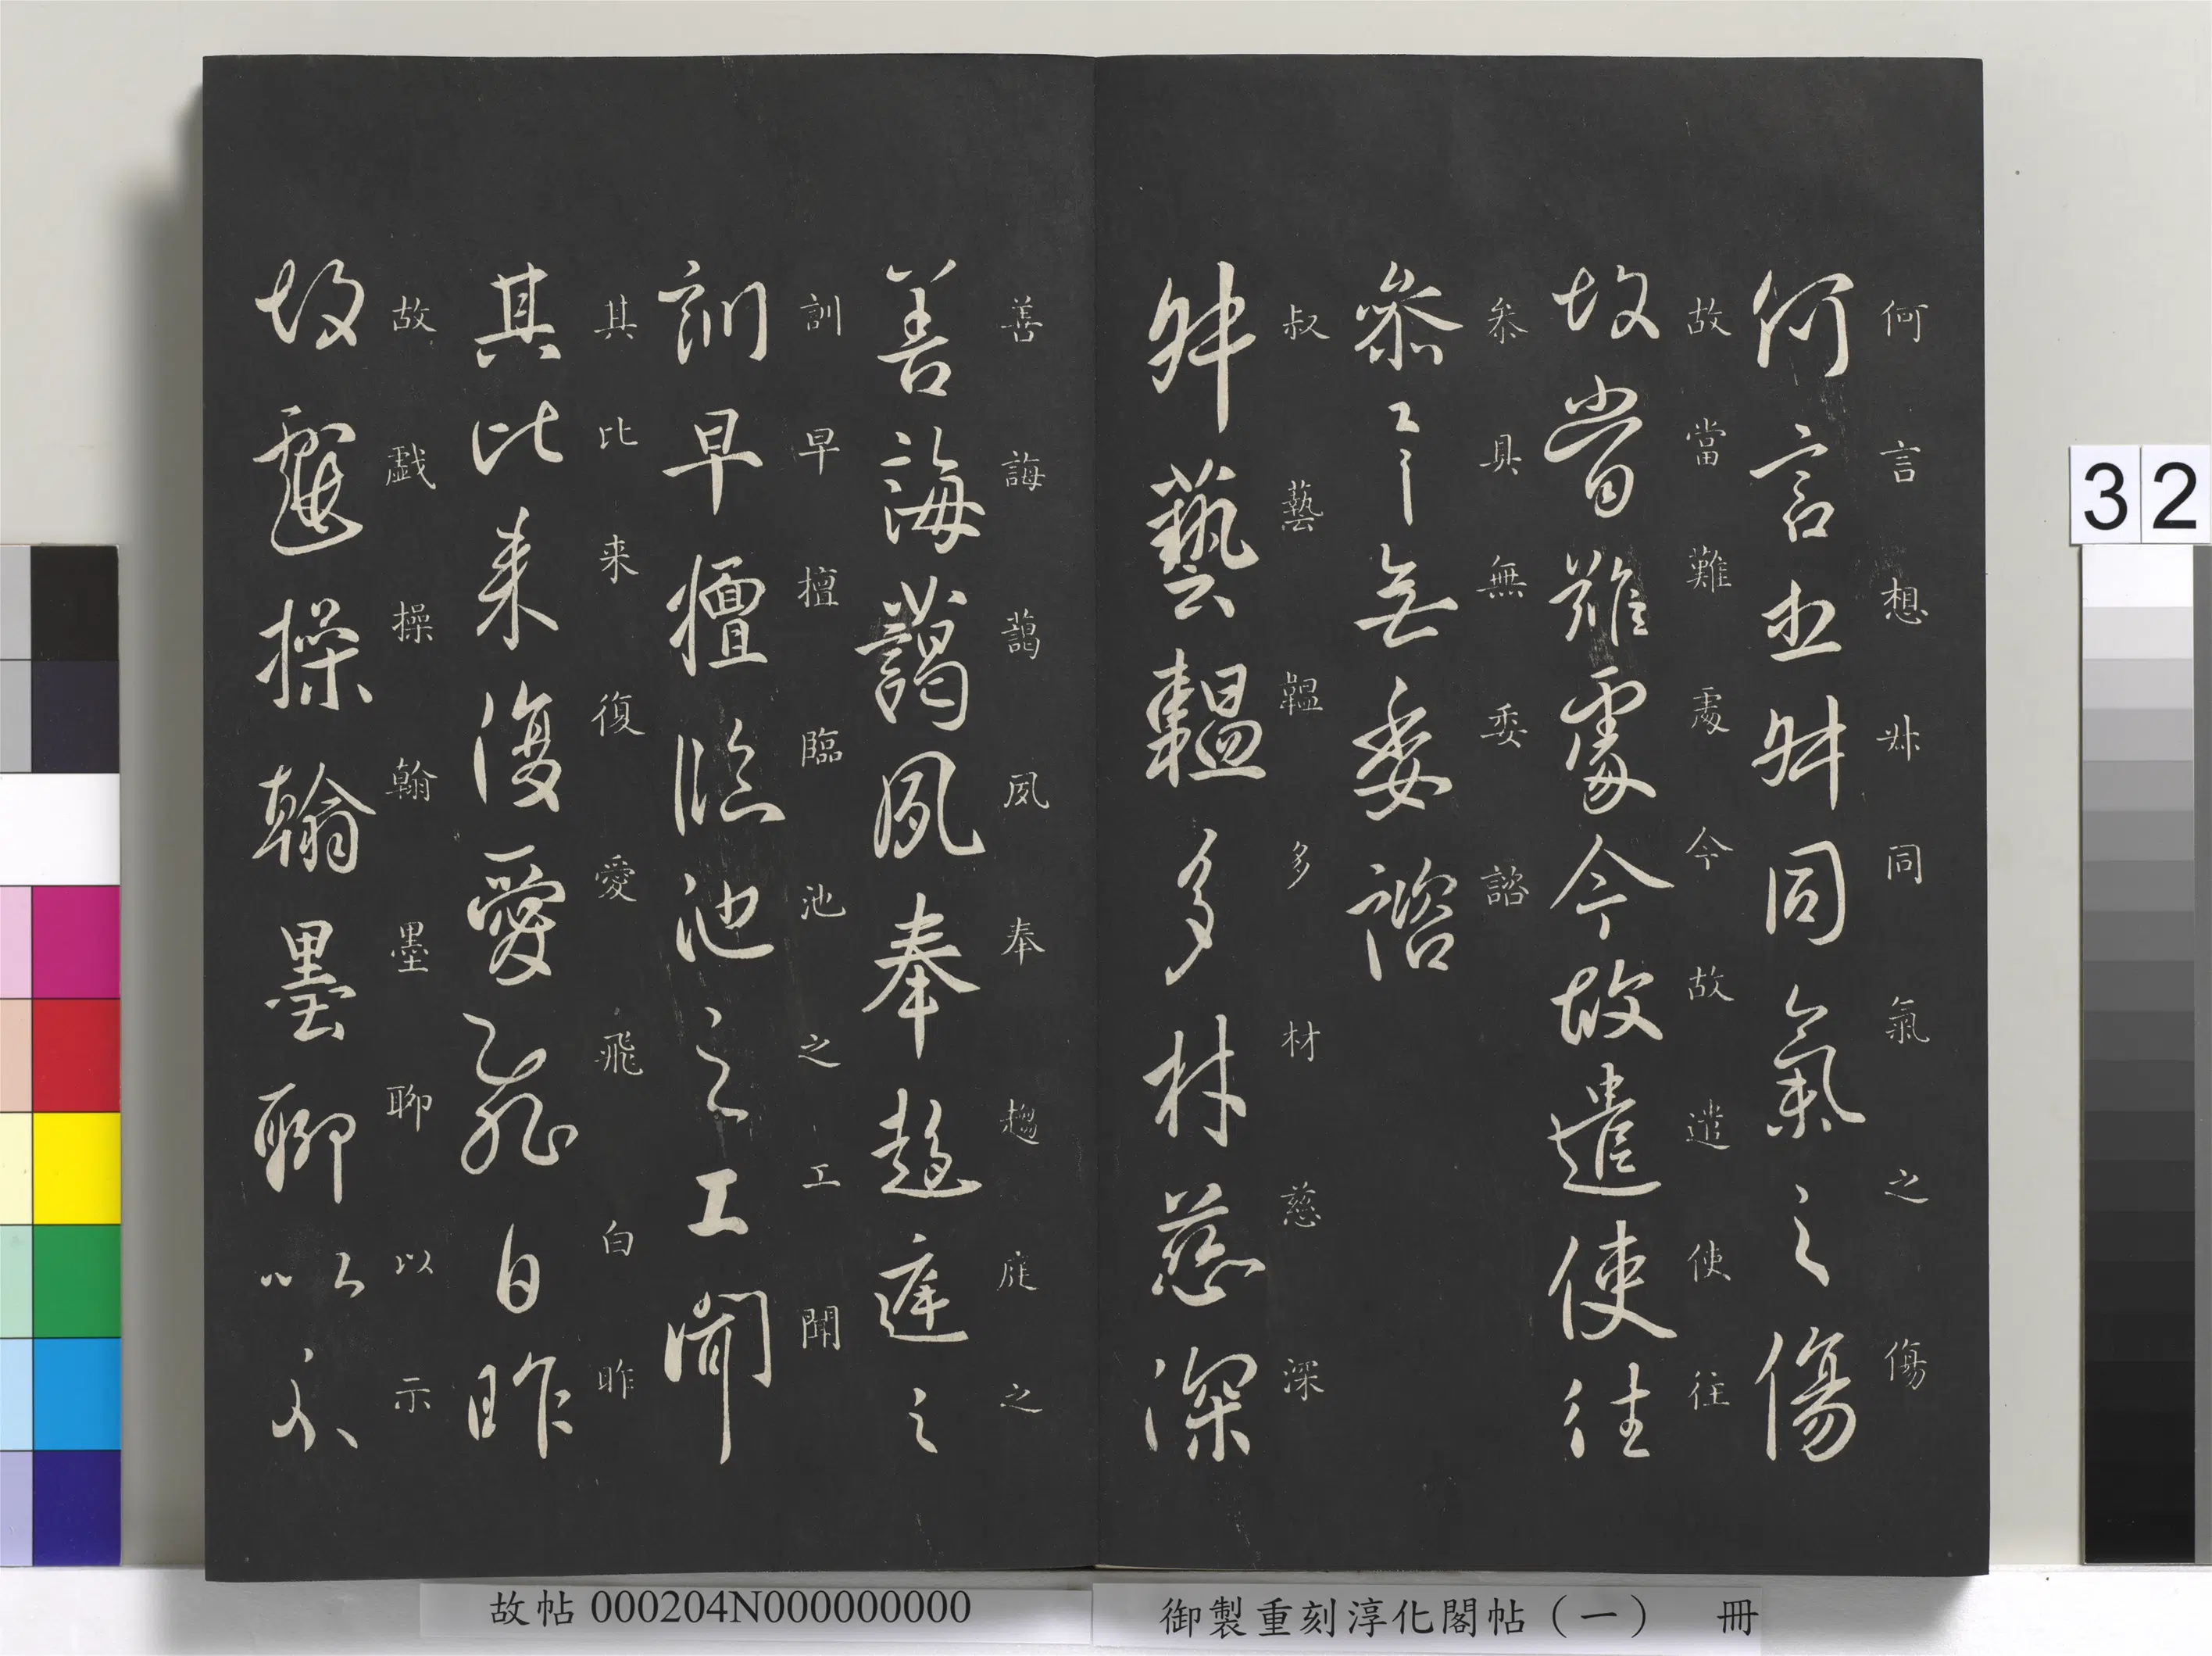 何言想叔同氣之傷
何言想叔同氣之傷
故當難處今故遣使往
故當難處今故遣使往
叅具無委諮
叅具無委諮
叔藝韞多材慈深
叔藝韞多材慈深
善誨藹夙奉趨庭之
善誨藹夙奉趨庭之
訓早擅臨池之工聞
訓早擅臨池之工聞
其比来復愛飛白昨
其比来復愛飛白昨
故戲操翰墨聊以示
故戲操翰墨聊以示
32
御製重刻淳化閣帖（一） 冊
故帖 000204N000000000